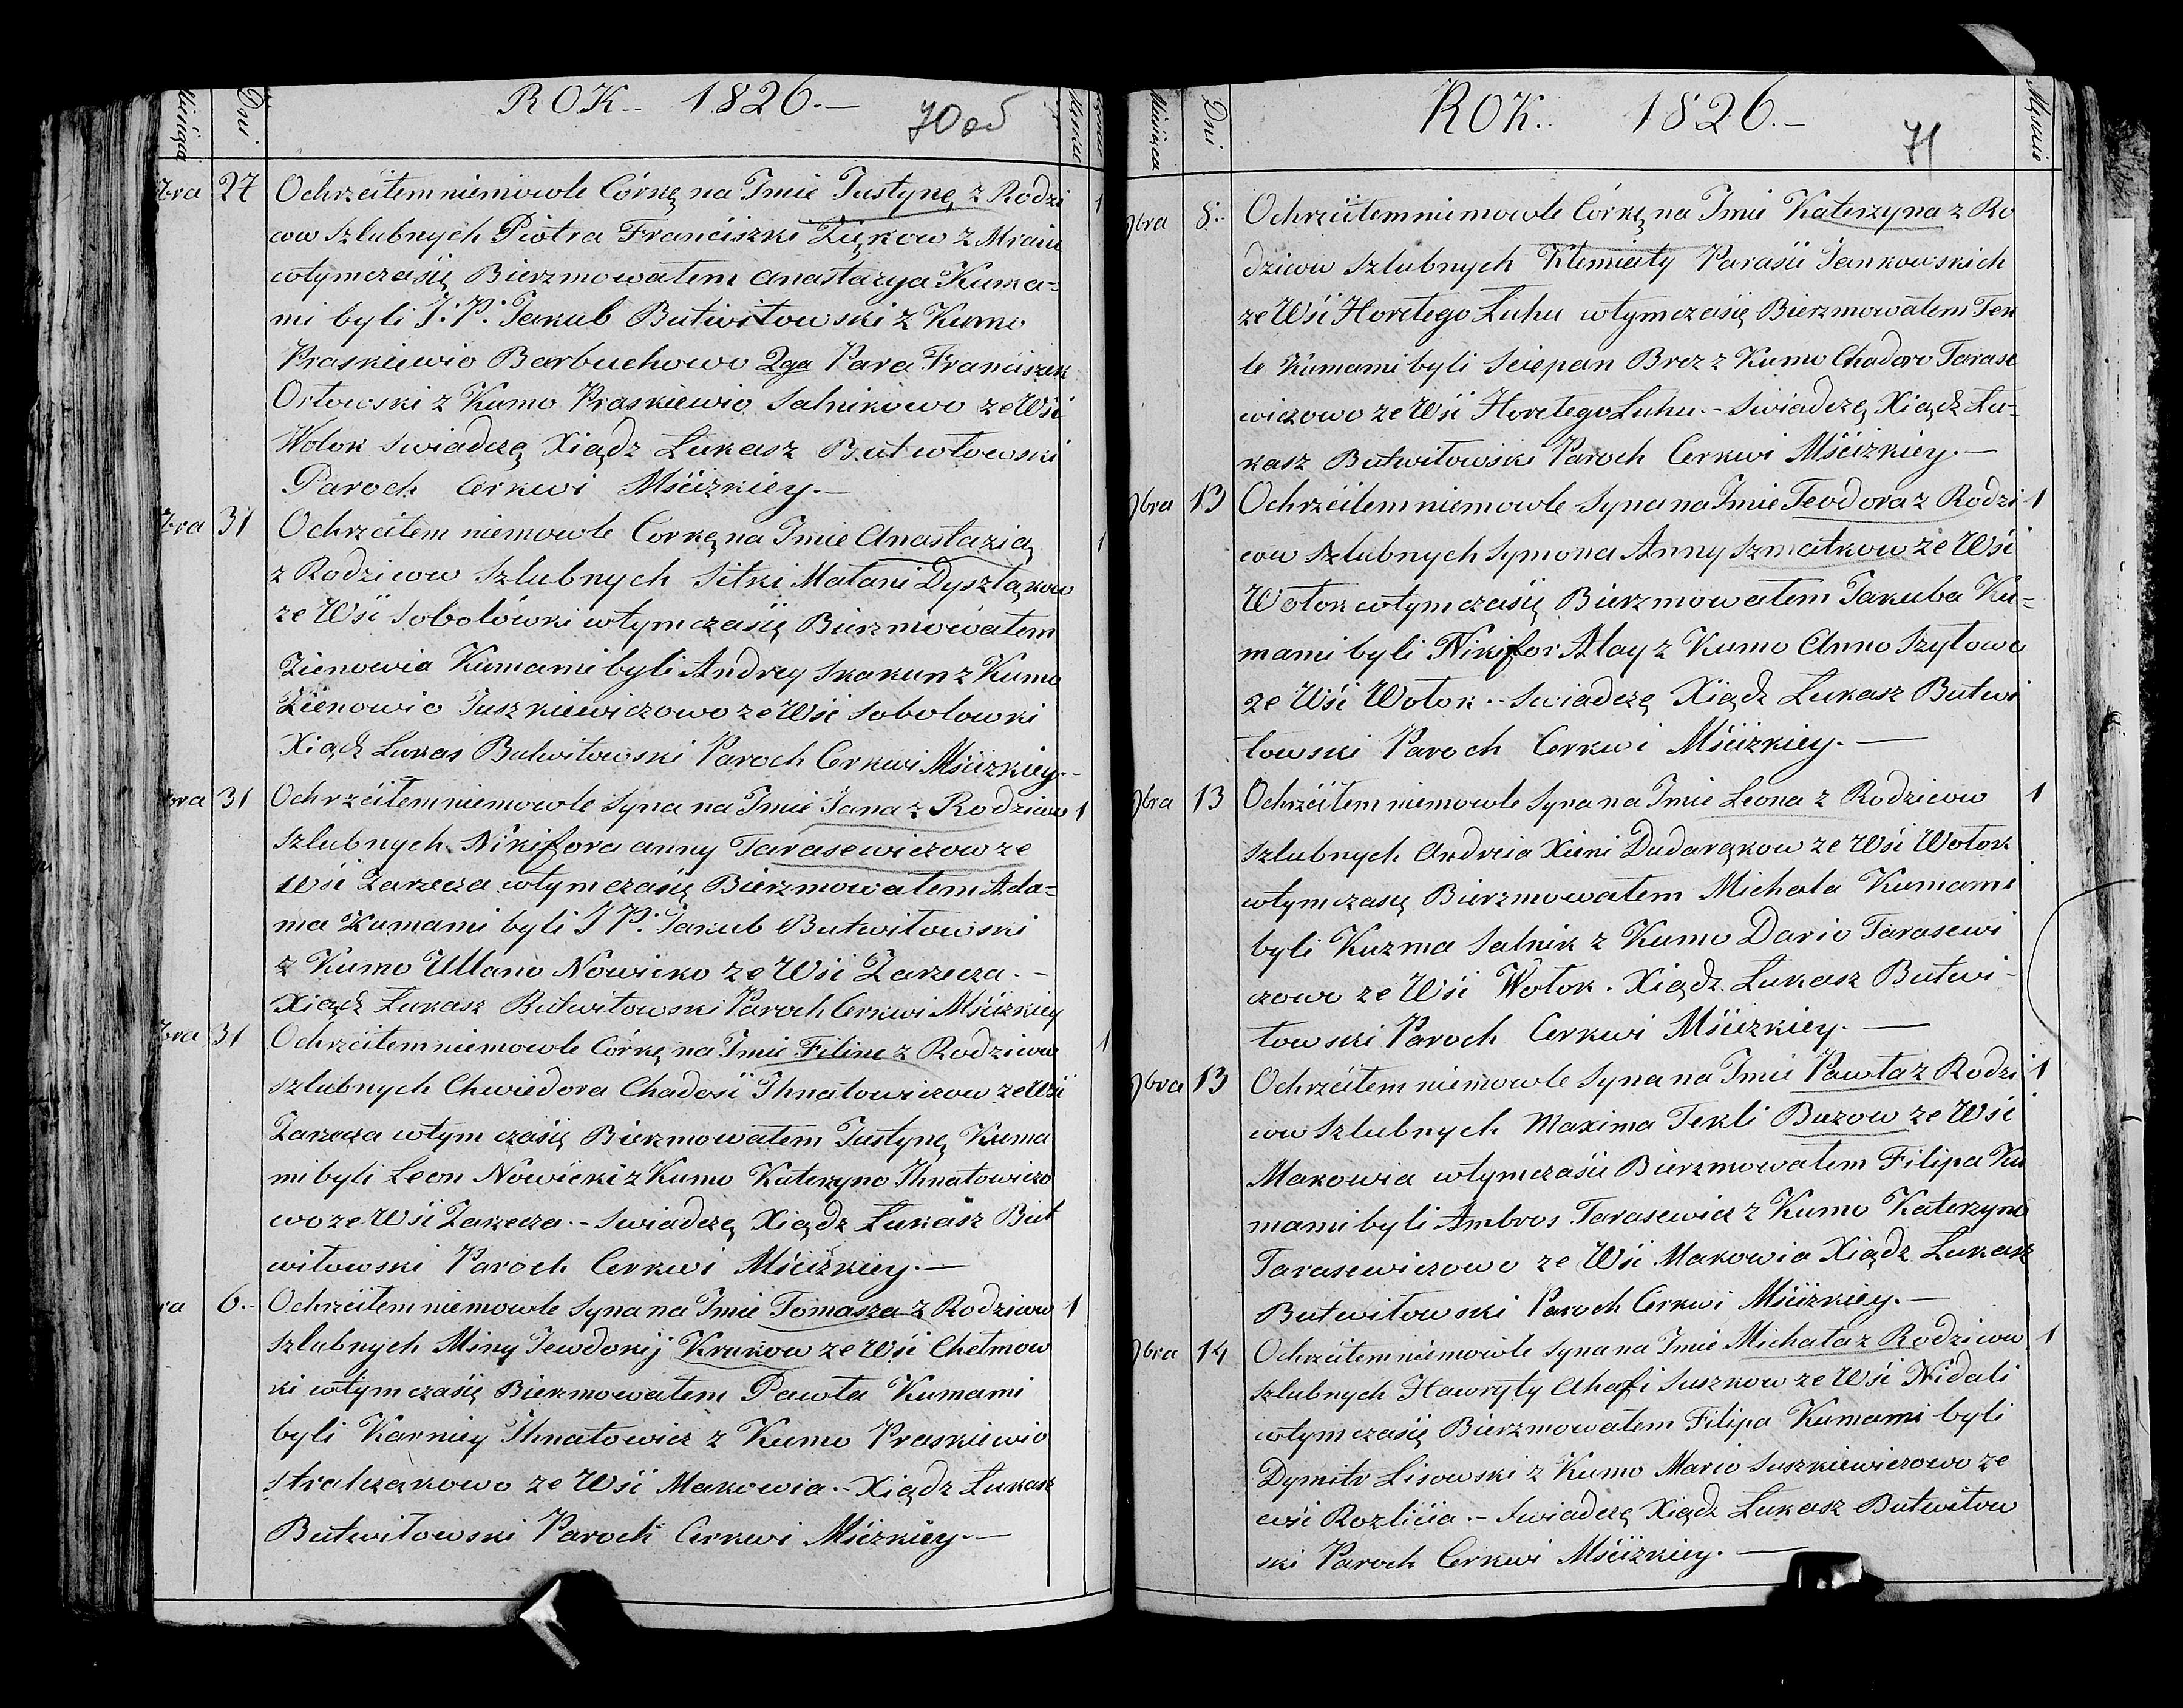 ROK.. 1826.—
70об
Miesiąca
Dni.
27 Ochrzciłem niemowle Córkę na Imie Justynę z Rodzi
cow szlubnych Piotra Franciszki Ziękow z
wtymczasię Bierzmowałem Anastazya Kuma=
mi byli J: P: Jakub Butwiłowski z Kumo
Praskiewio Barbuchowo 2ga Para Franciszek
Orłowski z Kumo Praskiewio Salnikowo ze Wśi
Wołok swiadczę Xiądz Lukasz Butwłowski
Paroch Cerkwi Mścizkiey.—
31 Ochrzciłem niemowle Corkę na Imie Anastazią 1
z Rodzicow Szlubnych Sitki Małani Dyszląkow
ze Wśi Sobolówki wtymczasię Bierzmowałem
Zienowia Kumami byli Andrey Skakun z Kumo
Zienowio Juszkiewiczowo ze Wśi Sobolowki
Xiądz Lukas Butwiłowski Paroch Cerkwi Mścizkiey.-
31 Ochrzciłem niemowle Syna na Imie Jana z Rodzicow 1
szlubnych Nikifora anny Tarasewiczow ze
Wśi Zarzecza wtymczasię Bierzmowałem Ada=
ma Kumami byli J P: Jakub Butwiłowski
z Kumo Ullano Nowicko ze Wśi Zarzecza.-
Xiądz Łukasz Butwiłowski Paroch Cerkwi Mścizkiey
31 Ochrzciłem niemowle Córkę na Imie Filine z Rodzicow 1
szlubnych Chwiedora Chadośi Ihnatowiczow ze Wśi
Zarzecza wtym czasię Bierzmowałem Justynę Kuma
mi byli Leon Nowicki z Kumo Katerzyno Ihnatowiczo
wo ze Wśi Zarzecza.- swiadczę Xiądz Łukasz But
wiłowski Paroch Cerkwi Mścizkiey.—
6.- Ochrzciłem niemowle Syna na Imie Tomasza z Rodzicow 1
szlubnych Miny Jewdokij Krukow ze Wśi Chełmow
ki wtymczasię Bierzmowałem Pawła Kumami
byli Karniey Ihnatowicz z Kumo Praskiewio
Stralczakowo ze Wśi Makowia.- Xiądz Łukasz
Butwiłowski Paroch Cerkwi Mścizkiey.—
ROK.. 1826.—
71
Miesiąca
Dni
8.- Ochrzciłem niemowle Córkę na Imie Katerzyna z Ro
dzicow szlubnych Klemięty Parasii Jankowskich
ze Wśi Horełego Łuhu wtymczasię Bierzmowałem Tek
le Kumami byli Sciepan Brez z Kumo Chadoro Tarase
wiczowo ze Wśi Horełego Luhu.- Swiadczę Xiądz Łu=
kasz Butwiłowski Paroch Cerkwi Mścizkiey.—
9bra 13 Ochrzciłem niemowle Syna na Imie Teodora z Rodzi 1
cow szlubnych Symona Anny Szmatkow ze Wśi
Wołok wtymczasię Bierzmowałem Jakuba Ku=
mami byli Nikifor Ałay z Kumo Anno Szyłowo
ze Wśi Wołok.- Swiadczę Xiądz Lukasz Butwi
łowski Paroch Cerkwi Mścizkiey.—
9bra 13 Ochrzciłem niemowle Syna na Imie Leona z Rodzicow 1
szlubnych Andreia Xieni Dudarąkow ze Wśi Wołok
wtymczasię Bierzmowałem Michała Kumami
byli Kuzma Salnik z Kumo Dario Tarasewi
czowo ze Wśi Wołok. Xiądz Łukasz Butwi-
łowski Paroch Cerkwi Mścizkiey.—
9bra 13 Ochrzciłem niemowle Syna na Imie Pawła z Rodzi 1
cow szlubnych Maxima Tekli Buzow ze Wśi
Makowia wtymczasię Bierzmowałem Filipa Ku
mami byli Ambros Tarasewicz z Kumo Katerzyno
Tarasewiczowo ze Wśi Makowia Xiądz Lukasz
Butwiłowski Paroch Cerkwi Mścizkiey.—
9bra 14 Ochrzciłem niemowle Syna na Imie Michała z Rodzicow 1
szlubnych Hawryły Ahafi Suszkow ze Wśi Nidali
wtymczasię Bierzmowałem Filipa Kumami byli
Dymitr Lisowski z Kumo Mario Suszkiewiczowo ze
wśi Rozlicia.- Swiadczę Xiądz Lukasz Butwiłow
ski Paroch Cerkwi Mścizkiey.—